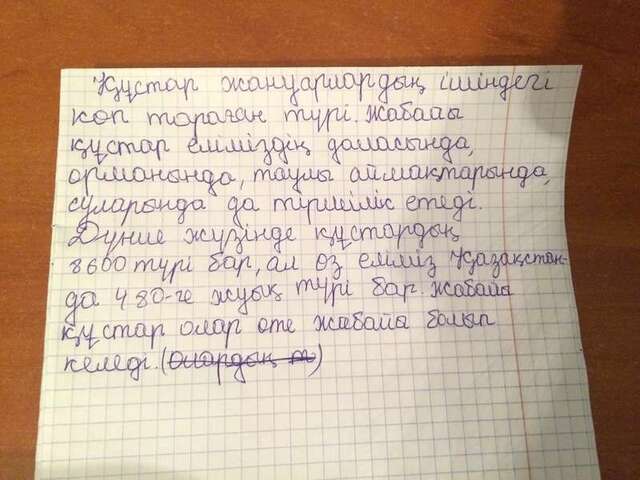 Құстар жануарлардың ішіндегі
көп тораған түрі. жабайы
құстар еліміздің даласында,
орманында, таулы аймақтарында,
суларында да тіршілік етеді.
Дүние жүзінде құстардың
8600 түрі бар, ал өз еліміз Қазақстан-
да 480-ге жуық түрі бар. жабайы
құстар олар өте жабайы болып
келеді. (олардың т)